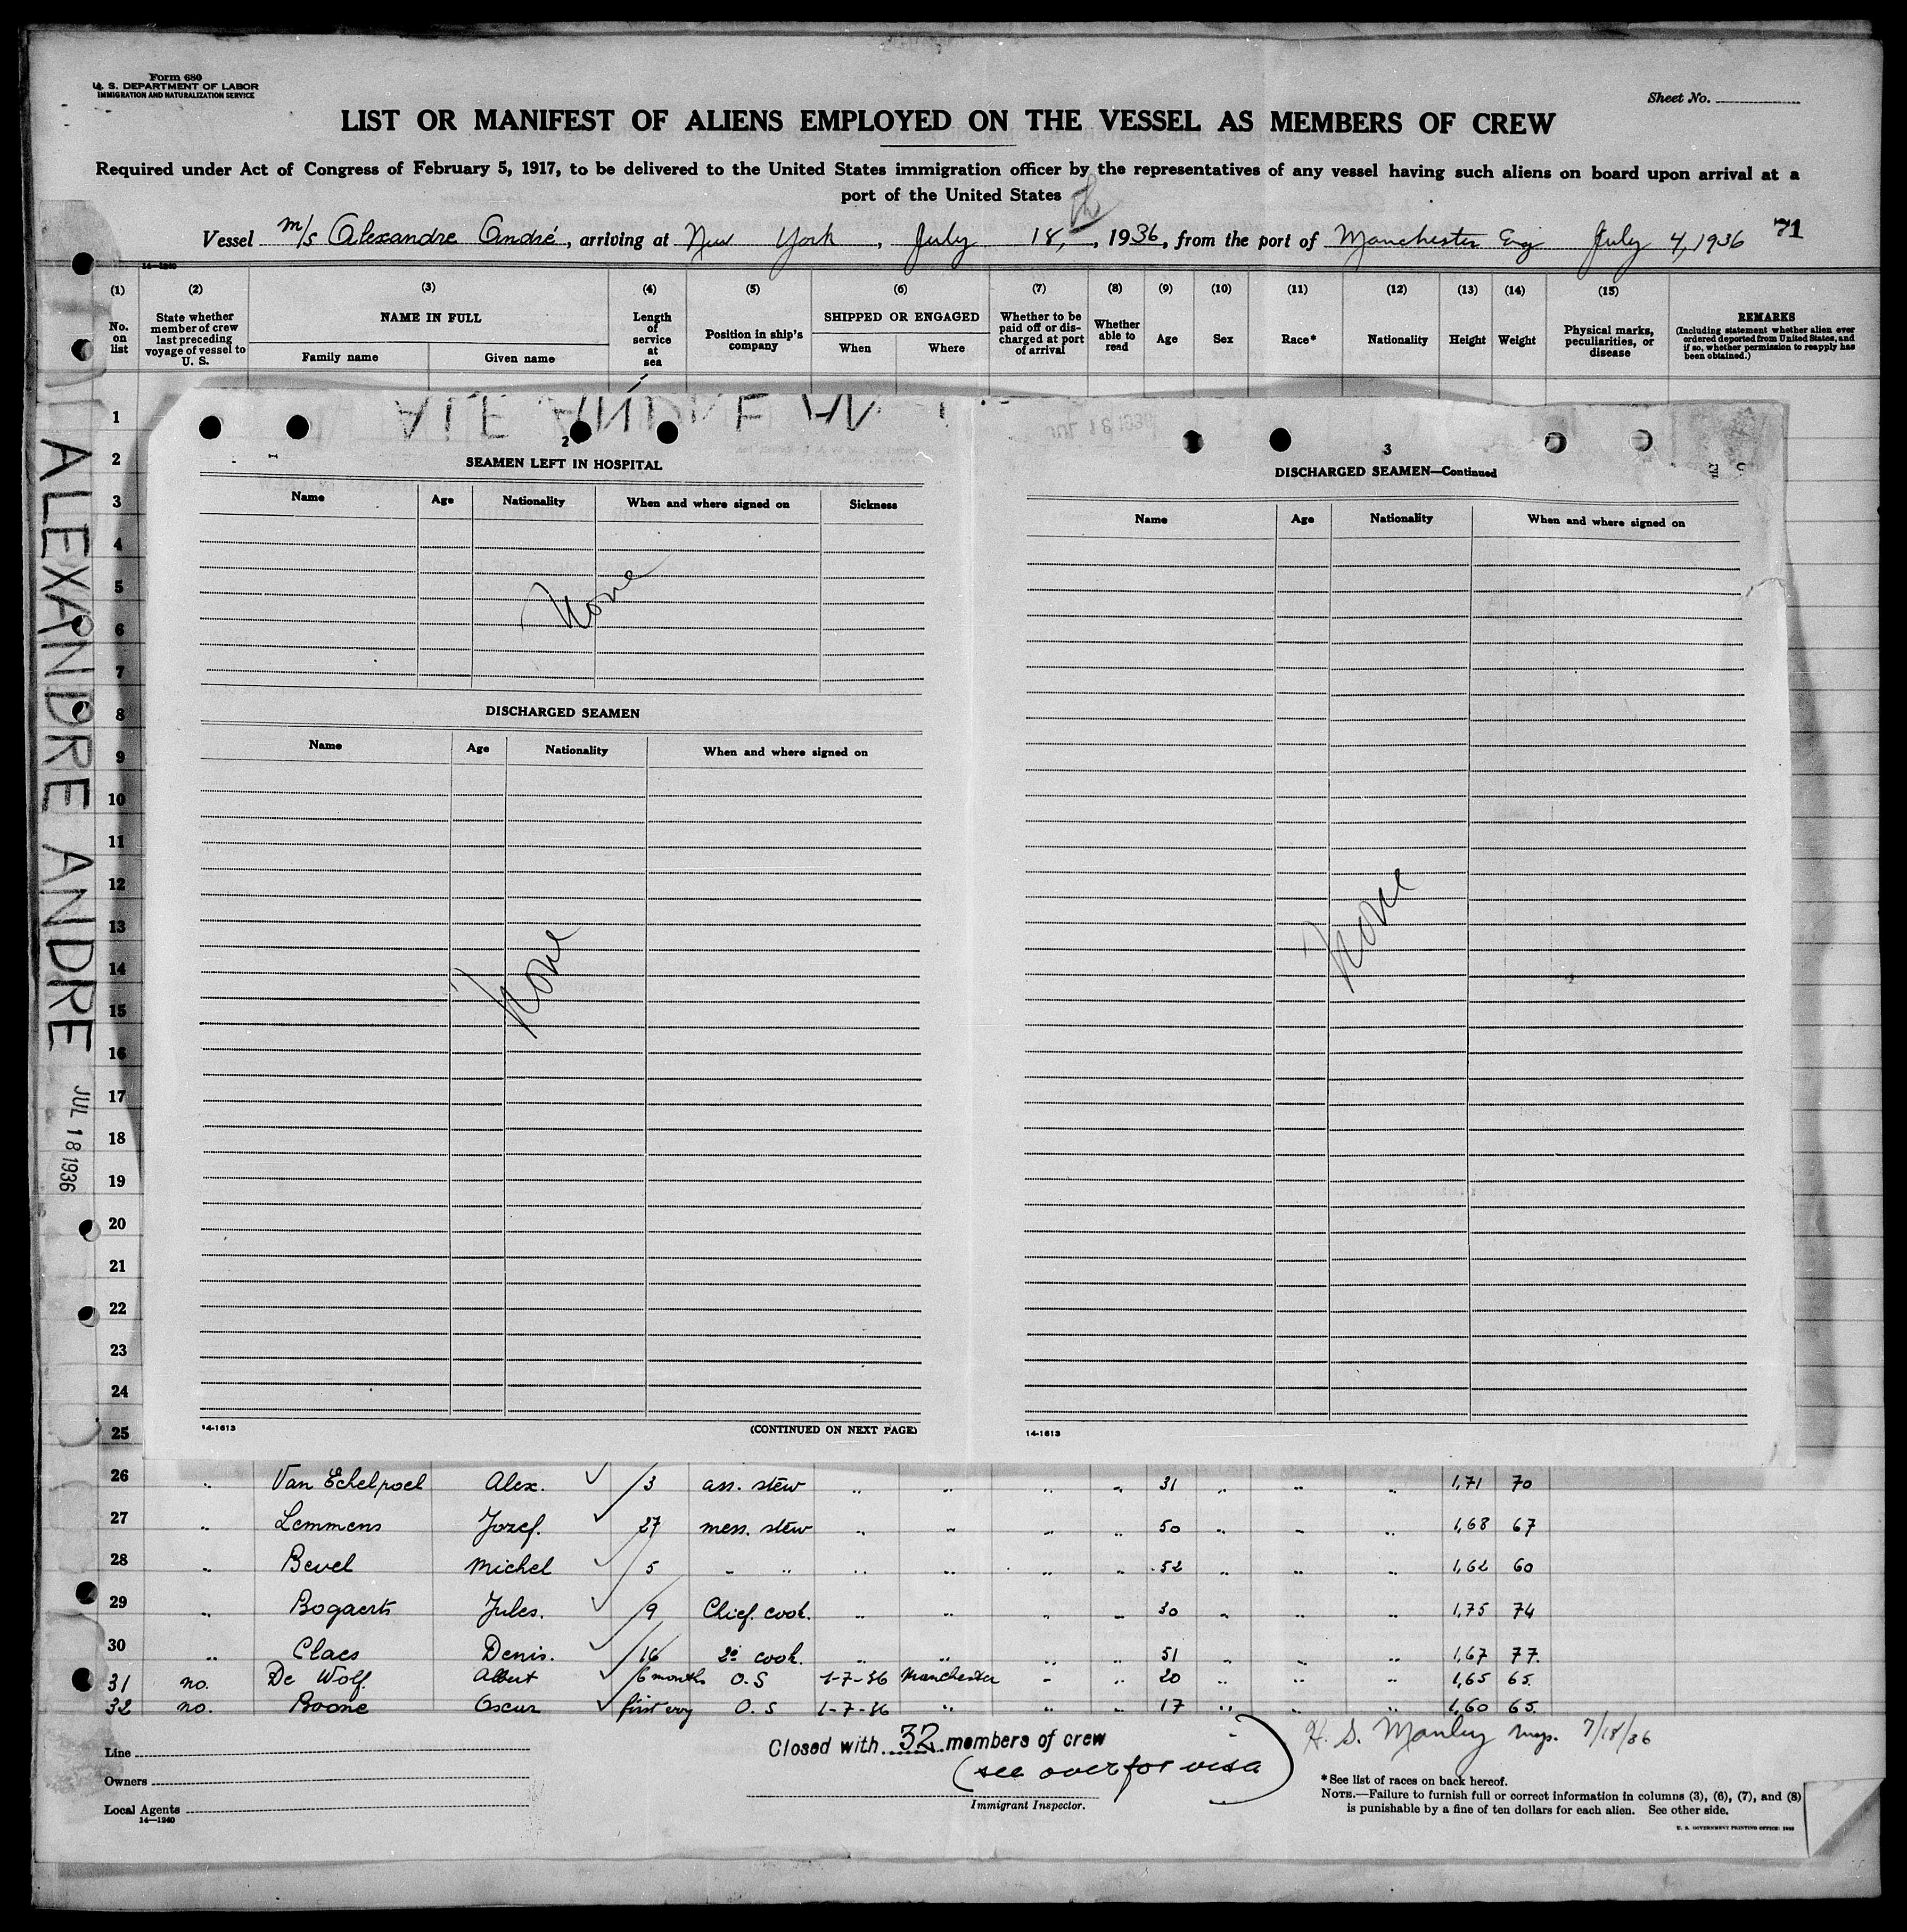 Form 680
U. S. DEPARTMENT OF LABOR
IMMIGRATION AND NATURALIZATION SERVICE
Sheet No.
LIST OR MANIFEST OF ALIENS EMPLOYED ON THE VESSEL AS MEMBERS OF CREW
Required under Act of Congress of February 5, 1917, to be delivered to the United States immigration officer by the representatives of any vessel having such aliens on board upon arrival at a
port of the United States
Vessel m/s Alexandre André, arriving at New York, July 18, 1936, from the port of Manchester Eng July 4, 1936 71
14-1240
(1) (2) (3) (4) (5) (6) (7) (8) (9) (10) (11) (12) (13) (14) (15)
No. on list
State whether member of crew last preceding voyage of vessel to U. S.
NAME IN FULL
Family name Given name
Length of service at sea
Position in ship's company
SHIPPED OR ENGAGED
When Where
Whether to be paid off or discharged at port of arrival
Whether able to read
Age Sex Race* Nationality Height Weight
Physical marks, peculiarities, or disease
REMARKS
(Including statement whether alien ever ordered deported from United States, and if so, whether permission to reapply has been obtained.)
ALEXANDRE ANDRE
JUL 18 1936
1
2
3
4
5
6
7
8
9
10
11
12
13
14
15
16
17
18
19
20
21
22
23
24
25
2
SEAMEN LEFT IN HOSPITAL
Name Age Nationality When and where signed on Sickness
None
DISCHARGED SEAMEN
Name Age Nationality When and where signed on
None
14-1613 (CONTINUED ON NEXT PAGE)
3
DISCHARGED SEAMEN—Continued
Name Age Nationality When and where signed on
None
14-1613
26 " Van Echelpoel Alex. ✓ 3 ass. stew " " " " 31 " " " 1,71 70
27 " Lemmens Jozef. ✓ 27 mess. stew " " " " 50 " " " 1,68 67
28 " Bevel Michel ✓ 5 " " " " " " 52 " " " 1,62 60
29 " Bogaerts Jules. ✓ 9 Chief. cook. " " " " 30 " " " 1,75 74
30 " Claes Denis. ✓ 16 2e cook. " " " " 51 " " " 1,67 77.
31 no. De Wolf. Albert ✓ 6 months O.S 1-7-36 Manchester " " 20 " " " 1,65 65.
32 no. Boone Oscar ✓ first voy O.S 1-7-36 " " " 17 " " " 1,60 65.
Closed with 32 members of crew
(see over for visa)
H. S. Manley Insp. 7/18/36
Line
Owners
Local Agents
14—1240
Immigrant Inspector.
*See list of races on back hereof.
NOTE.—Failure to furnish full or correct information in columns (3), (6), (7), and (8)
is punishable by a fine of ten dollars for each alien. See other side.